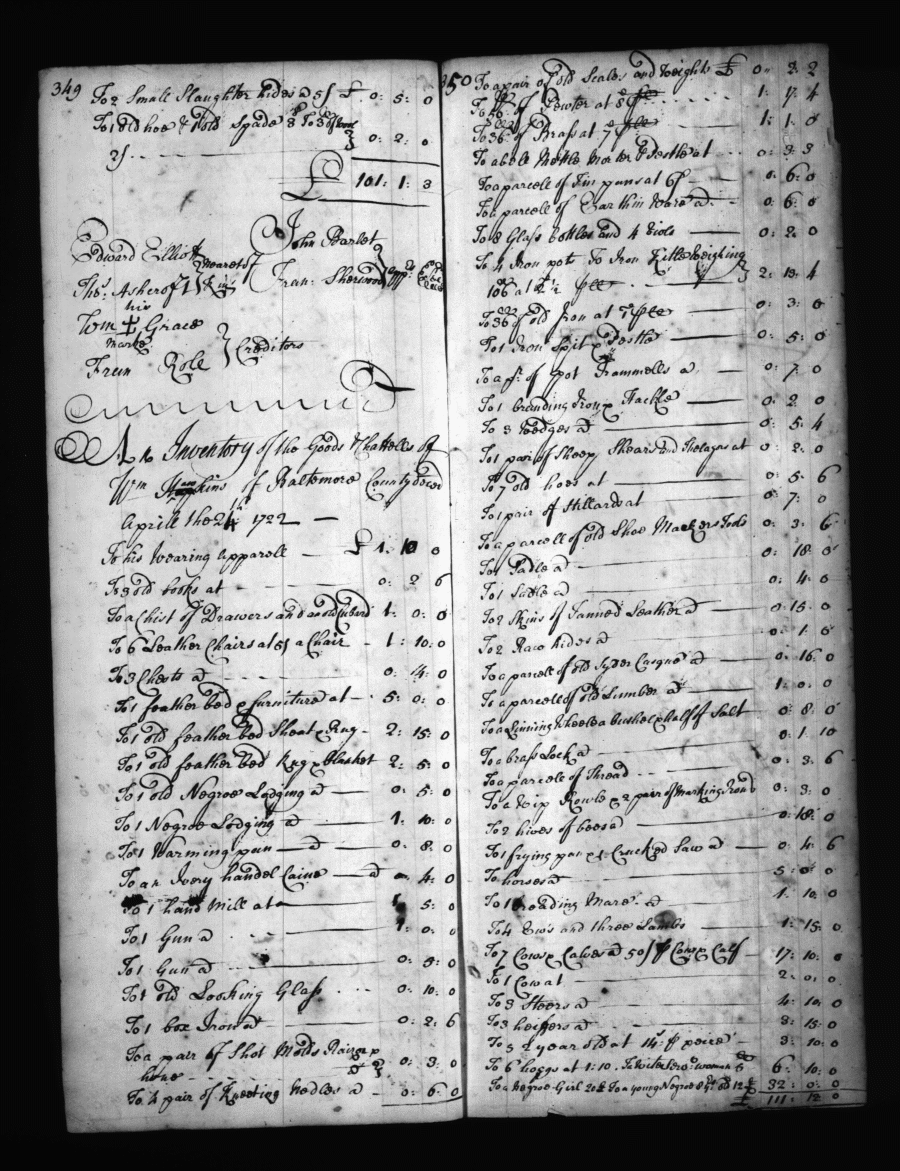 349
To 2 Small Slaughter hides @ 5/ £ 0: 5: 0
To 1 old hoe & 1 old Spade 8 To 3
2/ .. 0: 2: 0
£ 101: 1: 3
Edward Elliott
Thos. Ashcroft
his
Wm Grace
Marke
Nearest
Kin
John Barlet
Fran: Sherwood
Fran Role
Creditors
An Inventory of the Goods & Chattells of
Wm Hopkins of Baltemore County decd
Aprill the 24th 1722
To his Wearing Apparell £ 1: 10 0
To 3 old books at 0: 2 6
To a Chist of Drawers and an old Cubard 1: 0: 0
To 6 Leather Chairs at 5/ a Chair 1: 10: 0
To 3 Chests @ 0: 4: 0
To 1 feather bed & furniture at 5: 0: 0
To 1 old feather bed Sheat & Rug 2: 15: 0
To 1 old feather bed Rug & Blanket 2: 5: 0
To 1 old Negroe Lodging @ 0: 5: 0
To 1 Negroe Lodging @ 1: 10: 0
To 1 Warming pan @ 0: 8: 0
To an Ivery handel Caine @ 0: 4: 0
To 1 hand Mill at 1: 5: 0
To 1 Gun @ 1: 0: 0
To 1 Gun @ 0: 8: 0
To 1 old Looking Glass 0: 10: 0
To 1 box Iron @ 0: 2: 6
To a pair of Shot Molds Raizer &
hone 0: 3: 0
To 4 pair of Kneeting Nedles @ 0: 6: 0
350
To a pair of old Scales and Weights £ 0: 2: 2
of Pewter at 8d 1: 7: 4
To 36 of Brass at 7 1: 1: 0
To a bell Mettle Morter & Pestle at 0: 3: 3
To a parcell of Tin pans at 6/ 0: 6: 0
To a parcell of Earthin Ware @ 0: 6: 0
To 8 Glass bottles and 4 Viols 0: 2: 0
To 4 Iron pots To Iron Kittle Weighing
106 at 2 1/2 2: 13: 4
To 36 of old Iron at 0: 3: 0
To 1 Iron Spit & Pestle 0: 5: 0
To a pr. of pot Trammells @ 0: 7: 0
To 1 branding Iron & Hackle 0: 2: 0
To 3 Wedges @ 0: 5: 4
To 1 pair of Sheep Shears and at 0: 2: 0
To 7 old hoes at 0: 5: 6
To 1 pair of Stillards at 0: 7: 0
To a parcell of old Shoe Mackers Tools 0: 3: 6
To 1 Sadle @ 0: 18: 0
To 1 Sadle @ 0: 4: 0
To 2 Skins of Tanned Leather @ 0: 15: 0
To 2 Raw hides @ 0: 1: 6
To a parcell of old Syder Casque @ 0: 16: 0
To a parcell of old Lumber @ 1: 0: 0
To a Spinning Wheel & a bushel & half of Salt 0: 8: 0
To a brass Lock @ 0: 1: 10
To a parcele of Thread 0: 3: 6
To a Rowle & 2 pair of Marking Irons 0: 3: 0
To 2 hives of bees @ 0: 18: 0
To 1 frying pan & 1 Cracked Saw @ 0: 4: 6
To horses @ 5: 0: 0
To 1 breading Mare @ 1: 10: 0
To 4 Ews and three Lambs 1: 15: 0
To 7 Cows & Calves @ 50/ p Cow & Calf 17: 10: 0
To 1 Cow at 2: 0: 0
To 3 Steers @ 4: 10: 0
To 3 heifers @ 3: 15: 0
To 5 2 year old at 14/ p peice 3: 10: 0
To 6 hoggs at 1: 10. To woman 5 6: 10: 0
To a Negroe Girl 20£ To a young Negroe Girl @ 12 32: 0: 0
£ 111: 12 0